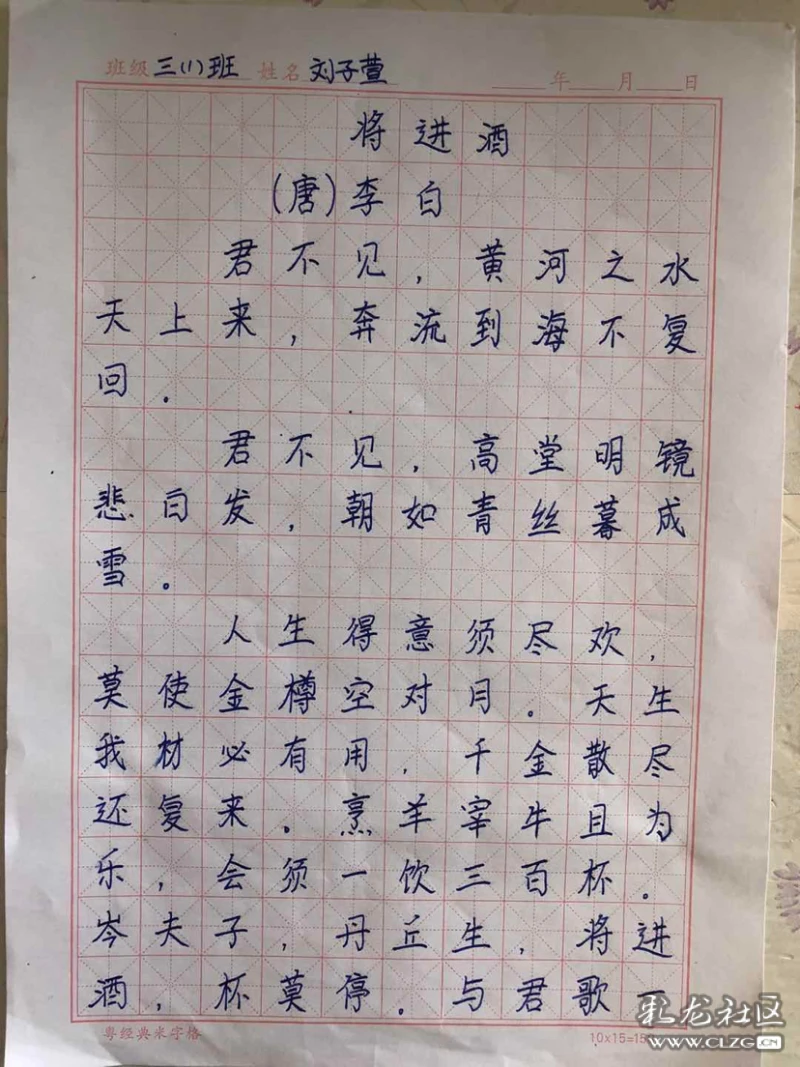 班级 三(1)班 姓名 刘子萱 年 月 日
将进酒
(唐)李白
君不见,黄河之水
天上来,奔流到海不复
回。
君不见,高堂明镜
悲白发,朝如青丝暮成
雪。
人生得意须尽欢,
莫使金樽空对月。天生
我材必有用,千金散尽
还复来。烹羊宰牛且为
乐,会须一饮三百杯。
岑夫子,丹丘生,将进
酒,杯莫停。与君歌一
粤经典米字格 10x15=15
龙社区
WWW.CLZG.CN